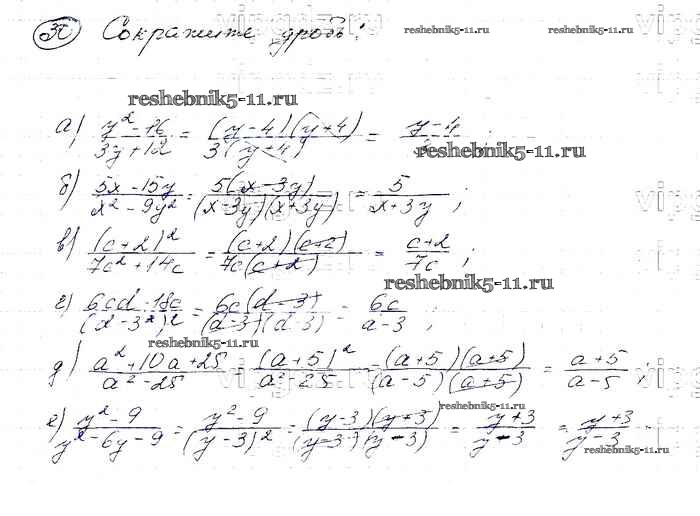 30 Сократите дробь:
reshebnik5-11.ru
reshebnik5-11.ru
а) (y² - 16)/(3y + 12) = ((y - 4)(y + 4))/(3(y + 4)) = (y - 4)/ ;
reshebnik5-11.ru
б) (5x - 15y)/(x² - 9y²) = (5(x - 3y))/((x - 3y)(x + 3y)) = 5/(x + 3y) ;
в) (c + 2)²/(7c² + 14c) = ((c + 2)(c + 2))/(7c(c + 2)) = (c + 2)/(7c) ;
reshebnik5-11.ru
г) (6cd - 18c)/(d - 3)² = (6c(d - 3))/((d - 3)(d - 3)) = 6c/(d - 3) ;
reshebnik5-11.ru
д) (a² + 10a + 25)/(a² - 25) = (a + 5)²/(a² - 25) = ((a + 5)(a + 5))/((a - 5)(a + 5)) = (a + 5)/(a - 5) ;
reshebnik5-11.ru
е) (y² - 9)/(y² - 6y - 9) = (y² - 9)/(y - 3)² = ((y - 3)(y + 3))/((y - 3)(y - 3)) = (y + 3)/(y - 3) = (y + 3)/(y - 3)
reshebnik5-11.ru